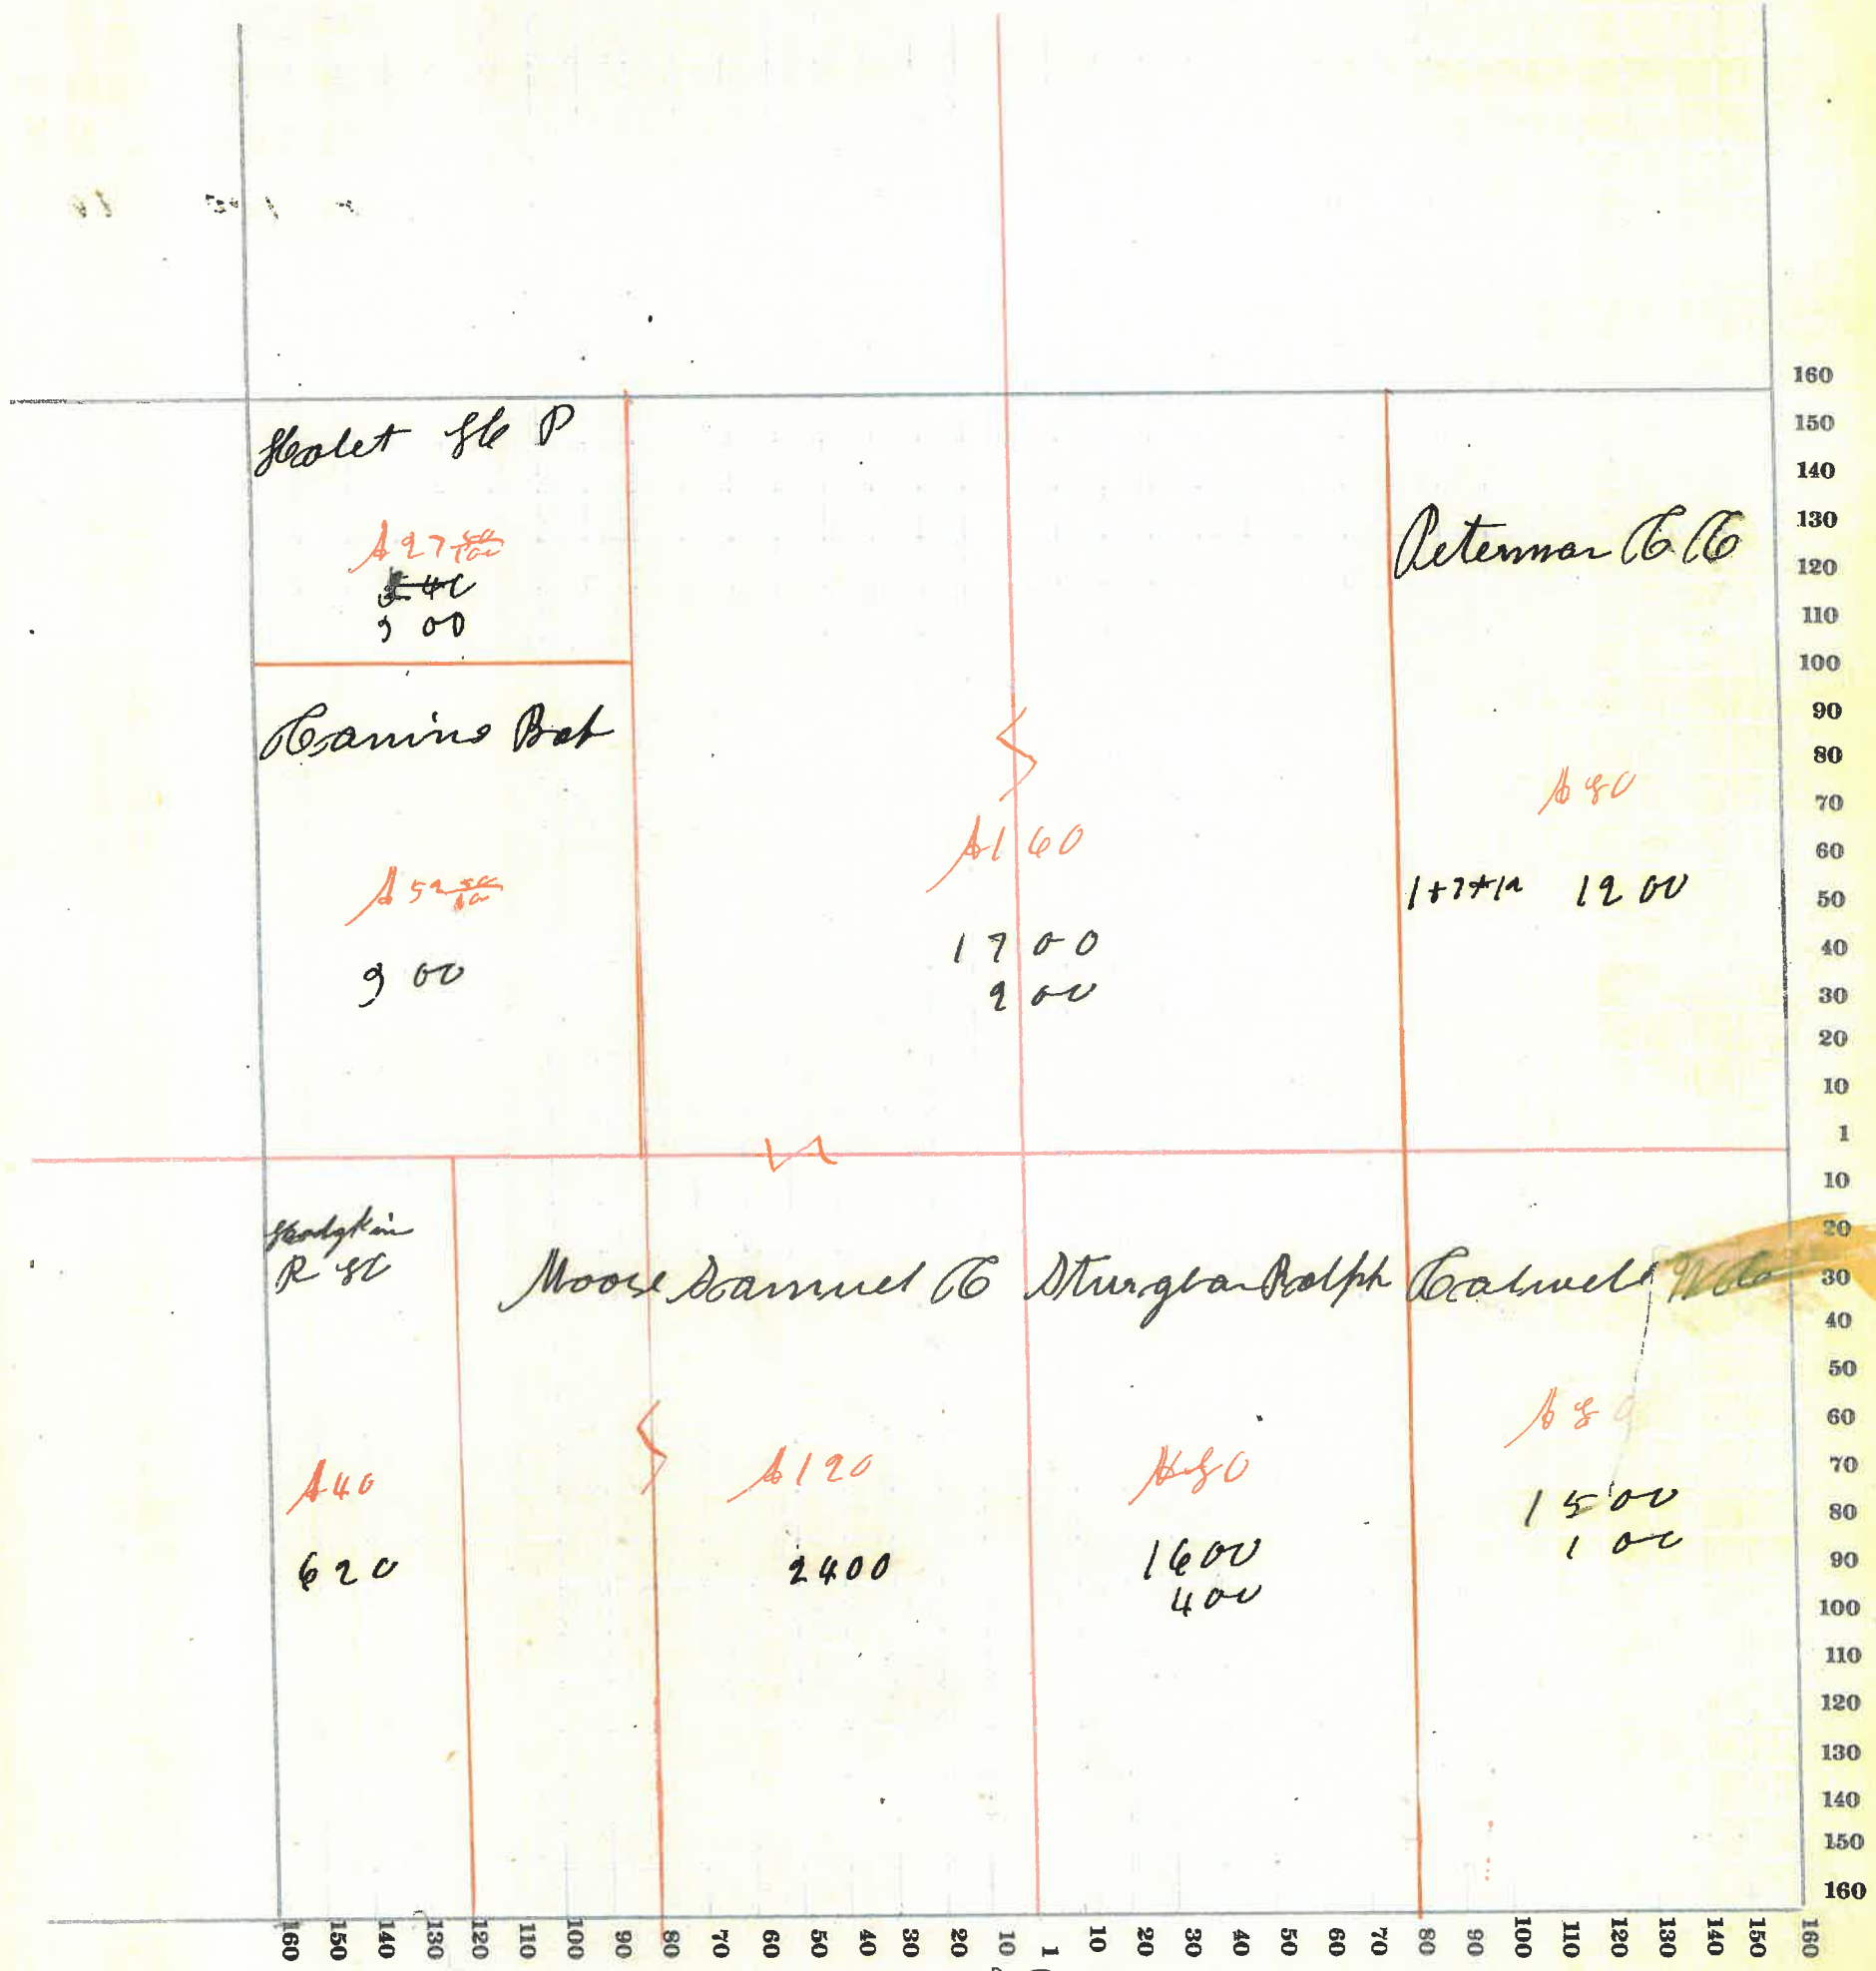 160
150
140
130
120
110
100
90
80
70
60
50
40
30
20
10
1
10
20
30
40
50
60
70
80
90
100
110
120
130
140
150
160
H P
A 27 50/100
300
Bat
A 52 50/100
900
A 160
1700
200
Peterman C C
A 80
1+7+12 1200
Hodgkin
R H
A 40
620
Moose Samuel C
A 120
2400
Ralph
A 80
1600
400
Calwell
A 80
1500
100
160 150 140 130 120 110 100 90 80 70 60 50 40 30 20 10 1 10 20 30 40 50 60 70 80 90 100 110 120 130 140 150 160